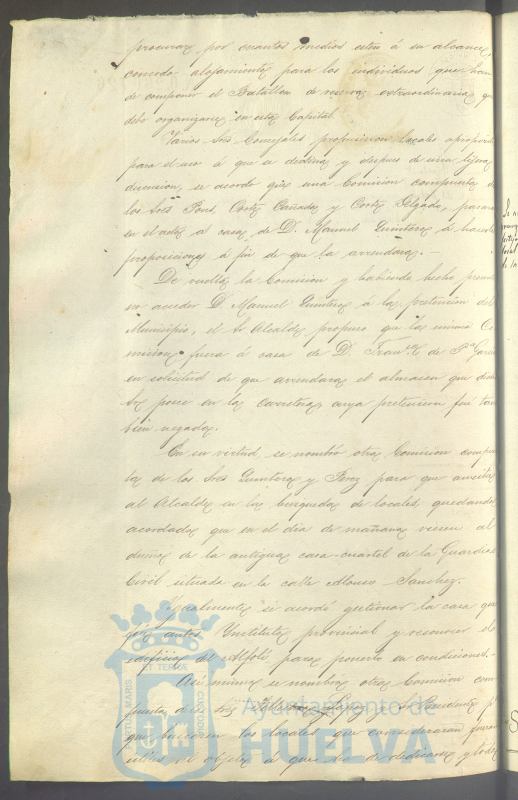 procurar por cuantos medios estén á su alcance,
comodo alojamiento para los individuos que han
de componer el Batallon de reserva extraordinaria que
debe organizarse en esta Capital.
Varios Sres Concejales propusieron locales apropósito
para el uso á que se destina y despues de una lijera
discusion, se acordó que una Comision compuesta de
los Sres Pons, Cortés Cañada y Cortés Delgado, pasara
en el acto á casa de D. Manuel Quintero á hacerle
proposiciones á fin de que la arrendara.
De vuelta la Comision y habiendo hecho presente
no acceder D. Manuel Quintero á la pretencion del
Municipio, el Sr Alcalde propuso que la misma Co
mision fuera á casa de D. Franco de Pa García
en solicitud de que arrendara el almacen que dicho
Sr posee en la carretera, cuya pretencion fué tam
bien negada.
En su virtud se nombró otra Comision compues
ta de los Sres Quintero y Perez para que auxilie
al Alcalde en la busqueda de locales, quedando
acordado que en el dia de mañana vieran al
dueño de la antigua casa-cuartel de la Guardia
Civil situada en la calle Alonso Sanchez.
Igualmente se acordó gestionar la casa que
fué antes Instituto provincial y reconocer el
edificio del Alfolí para ponerlo en condiciones.
Así mismo se nombró otra Comision com
puesta de los Sres y el Presidente pa
que buscasen los locales que consideraran fueran
utiles al objeto á que ha de dedicarse y todo
Ayuntamiento de
HUELVA
PORTUS MARIS
ET TERRÆ
CUSTODIA